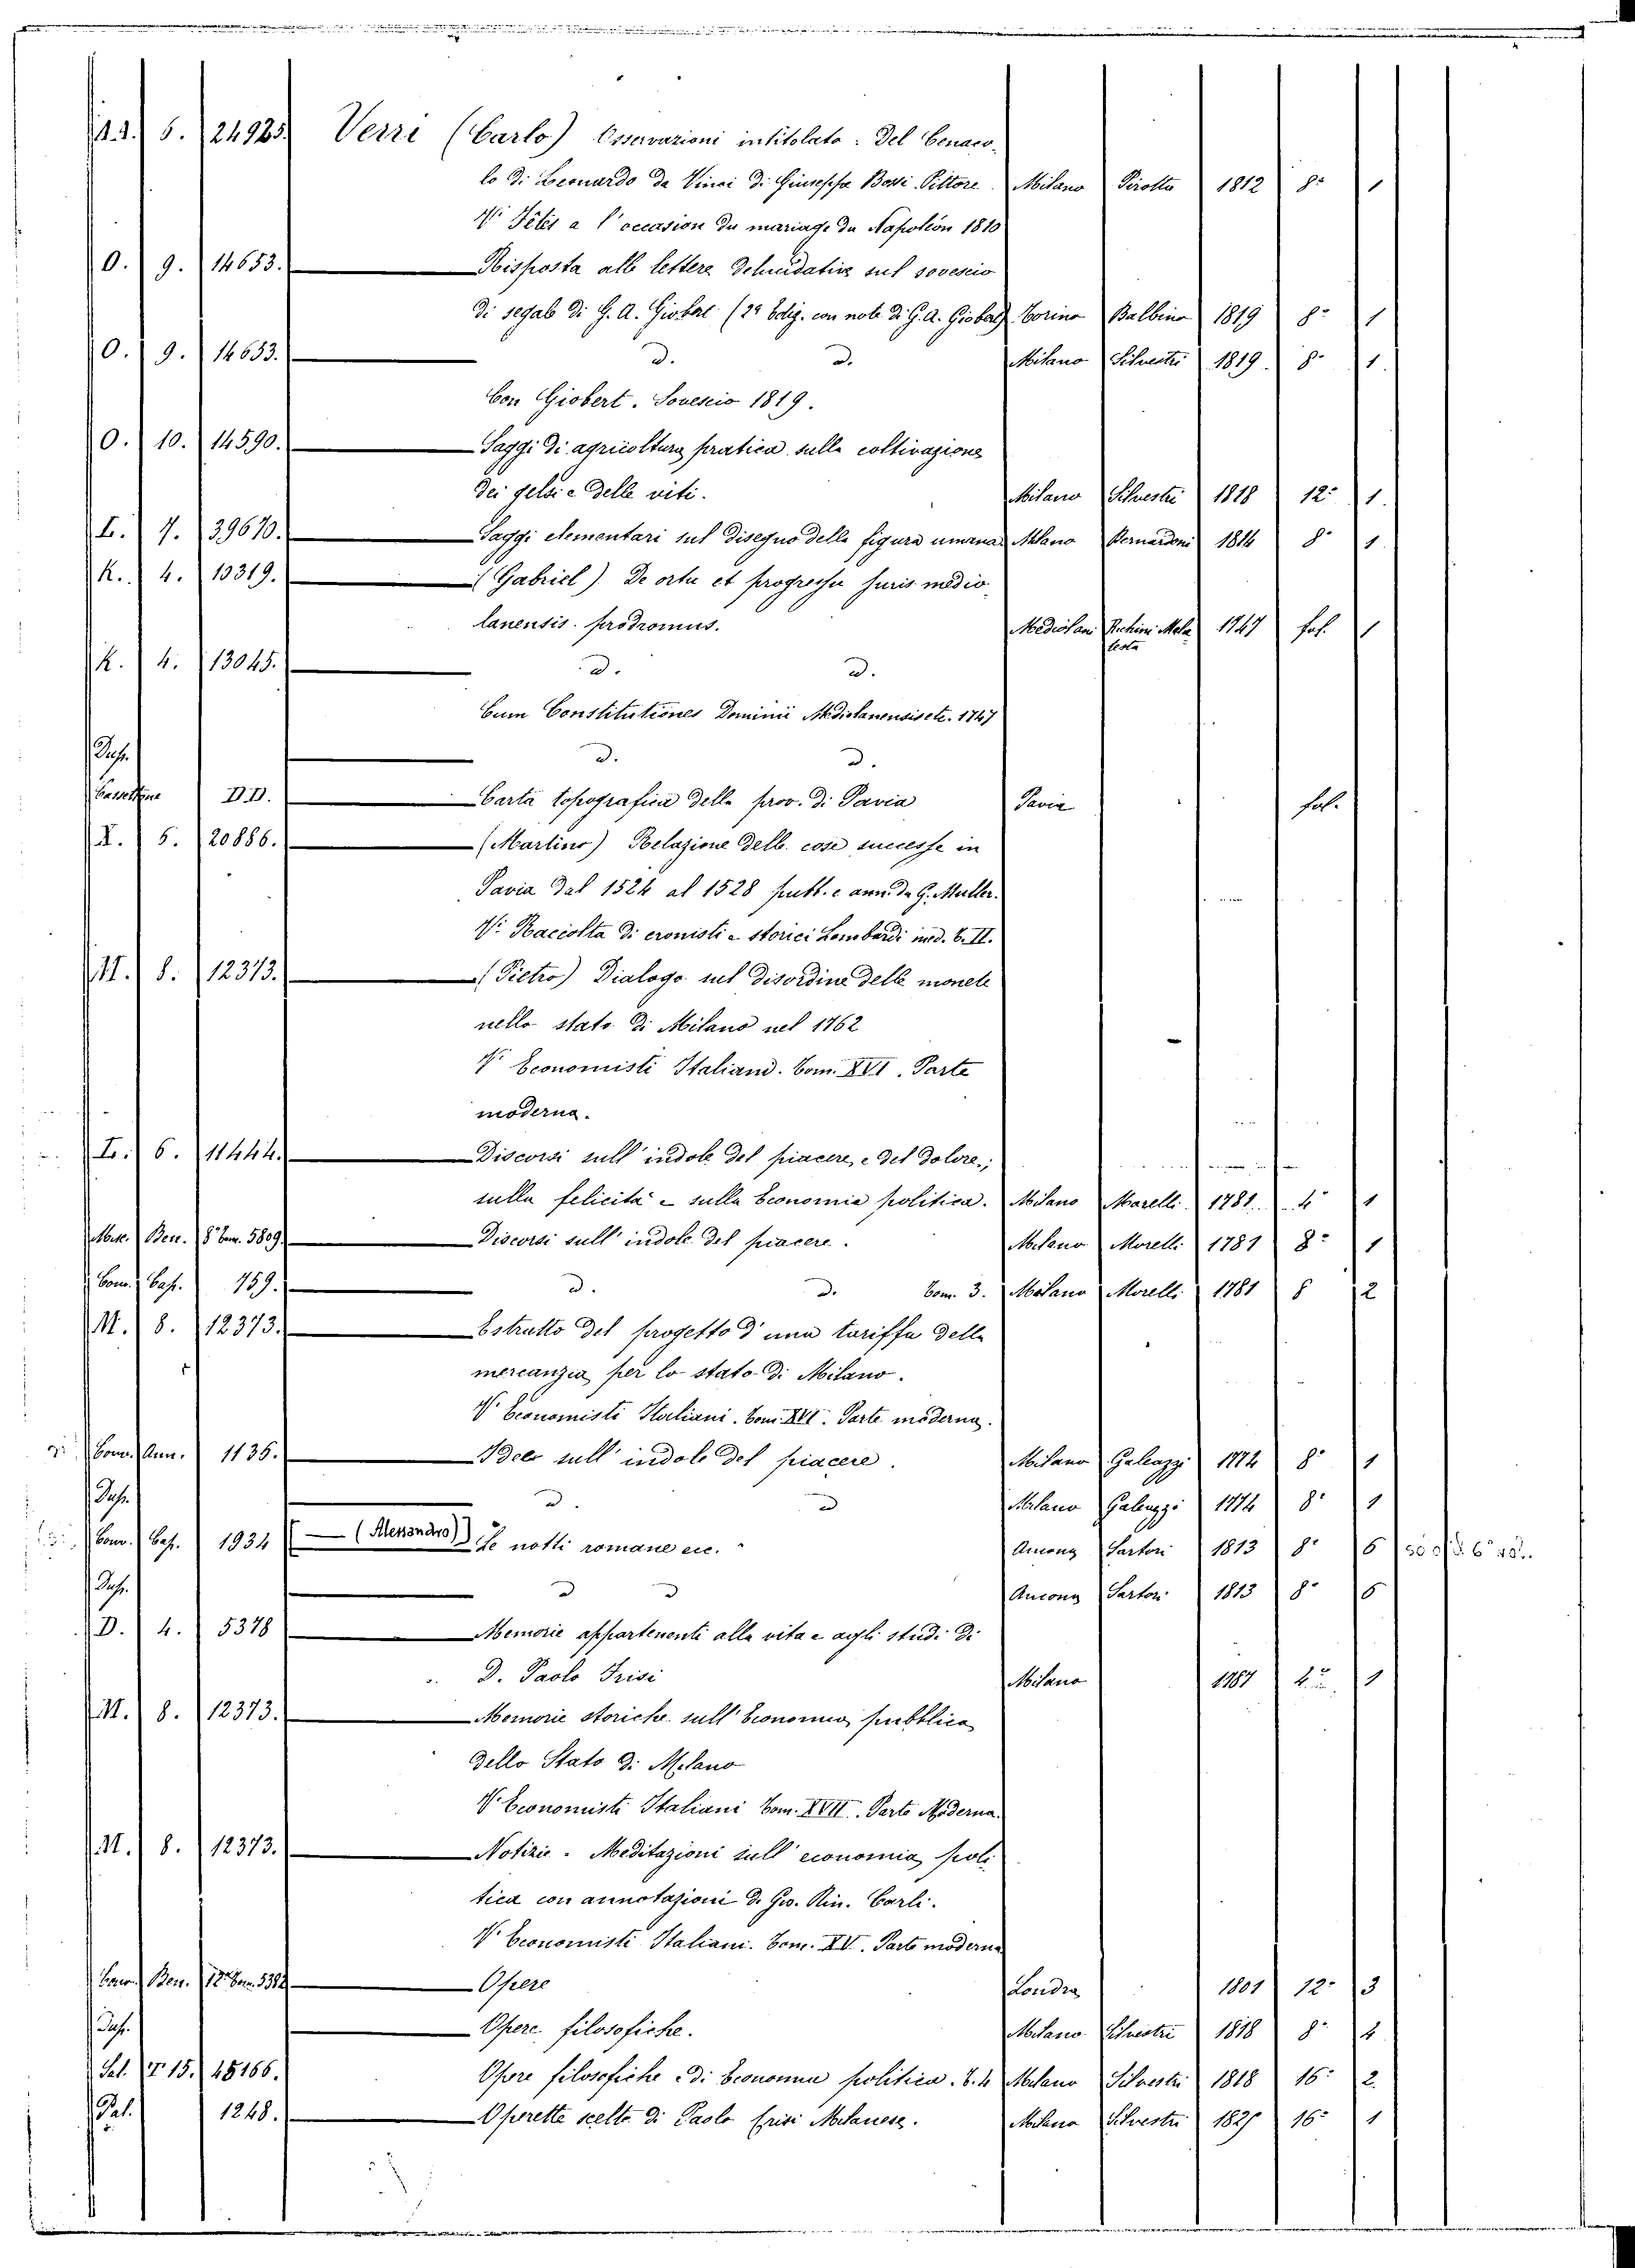 6. 24925. Verri (Carlo) Osservazioni intitolato: Del Cenaco-
lo di Leonardo da Vinci di Giuseppe Bossi Pittore. Milano Pirotta 1812 8º 1
Vi Fêtes a l'occasion du mariage du Napoléon 1810
O. 9. 14653. Risposta alle lettere sul sovescio
di segale di G. A. Giobert (2ª Ediz. con note di G. A. Giobert) Torino Balbino 1819 8º 1
O. 9. 14653. d. d. Milano Silvestri 1819. 8º 1.
Con Giobert. Sovescio 1819.
O. 10. 14590. Saggi di agricoltura pratica sulla coltivazione
dei gelsi e delle viti. Milano Silvestri 1818 12º 1.
L. 7. 39670. Saggi elementari sul disegno della figura umana Milano Bernardoni 1814 8º 1
K. 4. 10319. (Gabriel) De ortu et progressu juris medio-
lanensis prodromus. Mediolani Richini Mala testa 1747 fol. 1
K. 4. 13045. d. d.
Cum Constitutiones Dominii Mediolanensis etc. 1747
Dup. d. d.
DD. Carta topografica della prov. di Pavia Pavia fol.
X. 5. 20886. (Martino) Relazione delle cose successe in
Pavia dal 1524 al 1528 pubb. e ann. da G. Muller.
Vi Raccolta di cronisti e storici Lombardi ined. T. II.
M. 8. 12373. (Pietro) Dialogo sul disordine delle monete
nello stato di Milano nel 1762
Vi Economisti Italiani. Tom. XVI. Parte
moderna.
L. 6. 11444. Discorsi sull'indole del piacere, e del dolore;
sulla felicità e sulla Economia politica. Milano Marelli 1781. 4º 1
Ben. 5809. Discorsi sull'indole del piacere. Milano Morelli 1781 8º 1
Cap. 759. d. d. Tom. 3. Milano Morelli 1781 8 2
M. 8. 12373. Estratto del progetto d'una tariffa della
mercanzia per lo stato di Milano.
Vi Economisti Italiani. Tom. XVI. Parte moderna.
Ann. 1135. Idee sull'indole del piacere. Milano Galeazzi 1774 8º 1
Dup. d. d Milano Galeazzi 1774 8º 1
Cap. 1934 — (Alessandro) Le notti romane ecc. Ancona Sartori 1813 8º 6
Dup. d d Ancona Sartori 1813 8º 6
D. 4. 5378 Memorie appartenenti alla vita e agli studi di
D. Paolo Frisi Milano 1787 4º 1
M. 8. 12373. Memorie storiche sull'Economia pubblica
dello Stato di Milano
Vi Economisti Italiani Tom. XVII. Parte Moderna.
M. 8. 12373. Notizie - Meditazioni sull'economia poli-
tica con annotazioni di Gio. Rin. Carli.
Vi Economisti Italiani. Tom. XV. Parte moderna
Ben. Opere Londra 1801 12º 3
Dup. Opere filosofiche. Milano Silvestri 1818 8º 4
Sal. T 15. 45166. Opere filosofiche e di Economia politica. T. 4 Milano Silvestri 1818 16º 2.
Pal. 1248. Operette scelte di Paolo Frisi Milanese. Milano Silvestri 1825 16º 1